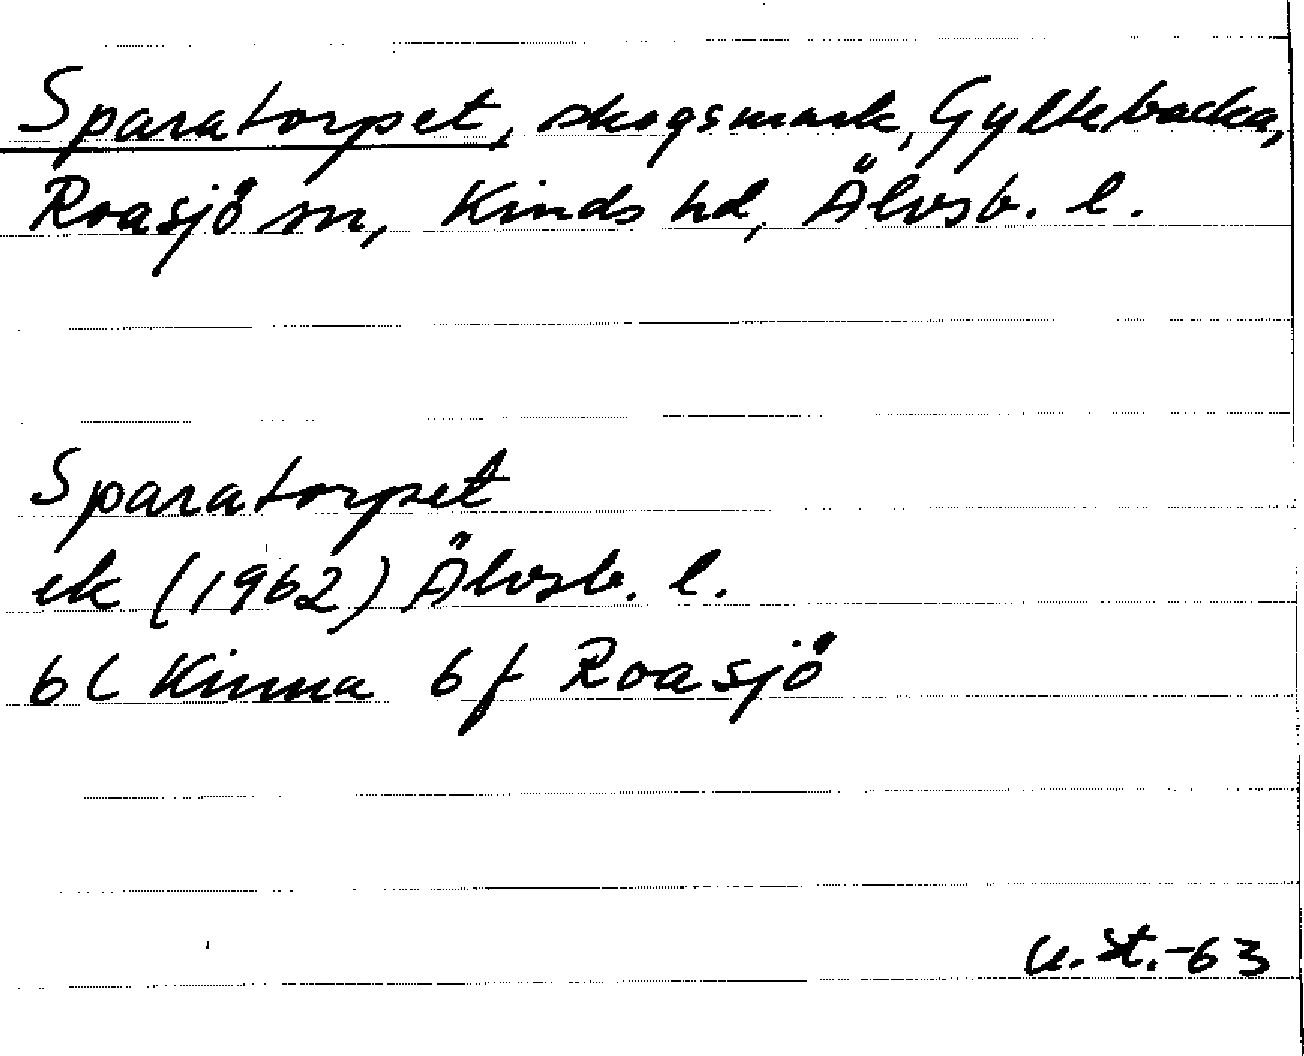 Sparatorpet, skogsmark, Gyltebacka,
Roasjö sn, Kinds hd, Älvsb. l.
Sparatorpet
ek (1962) Älvsb. l.
6C Kinna 6f Roasjö
U.St.-63